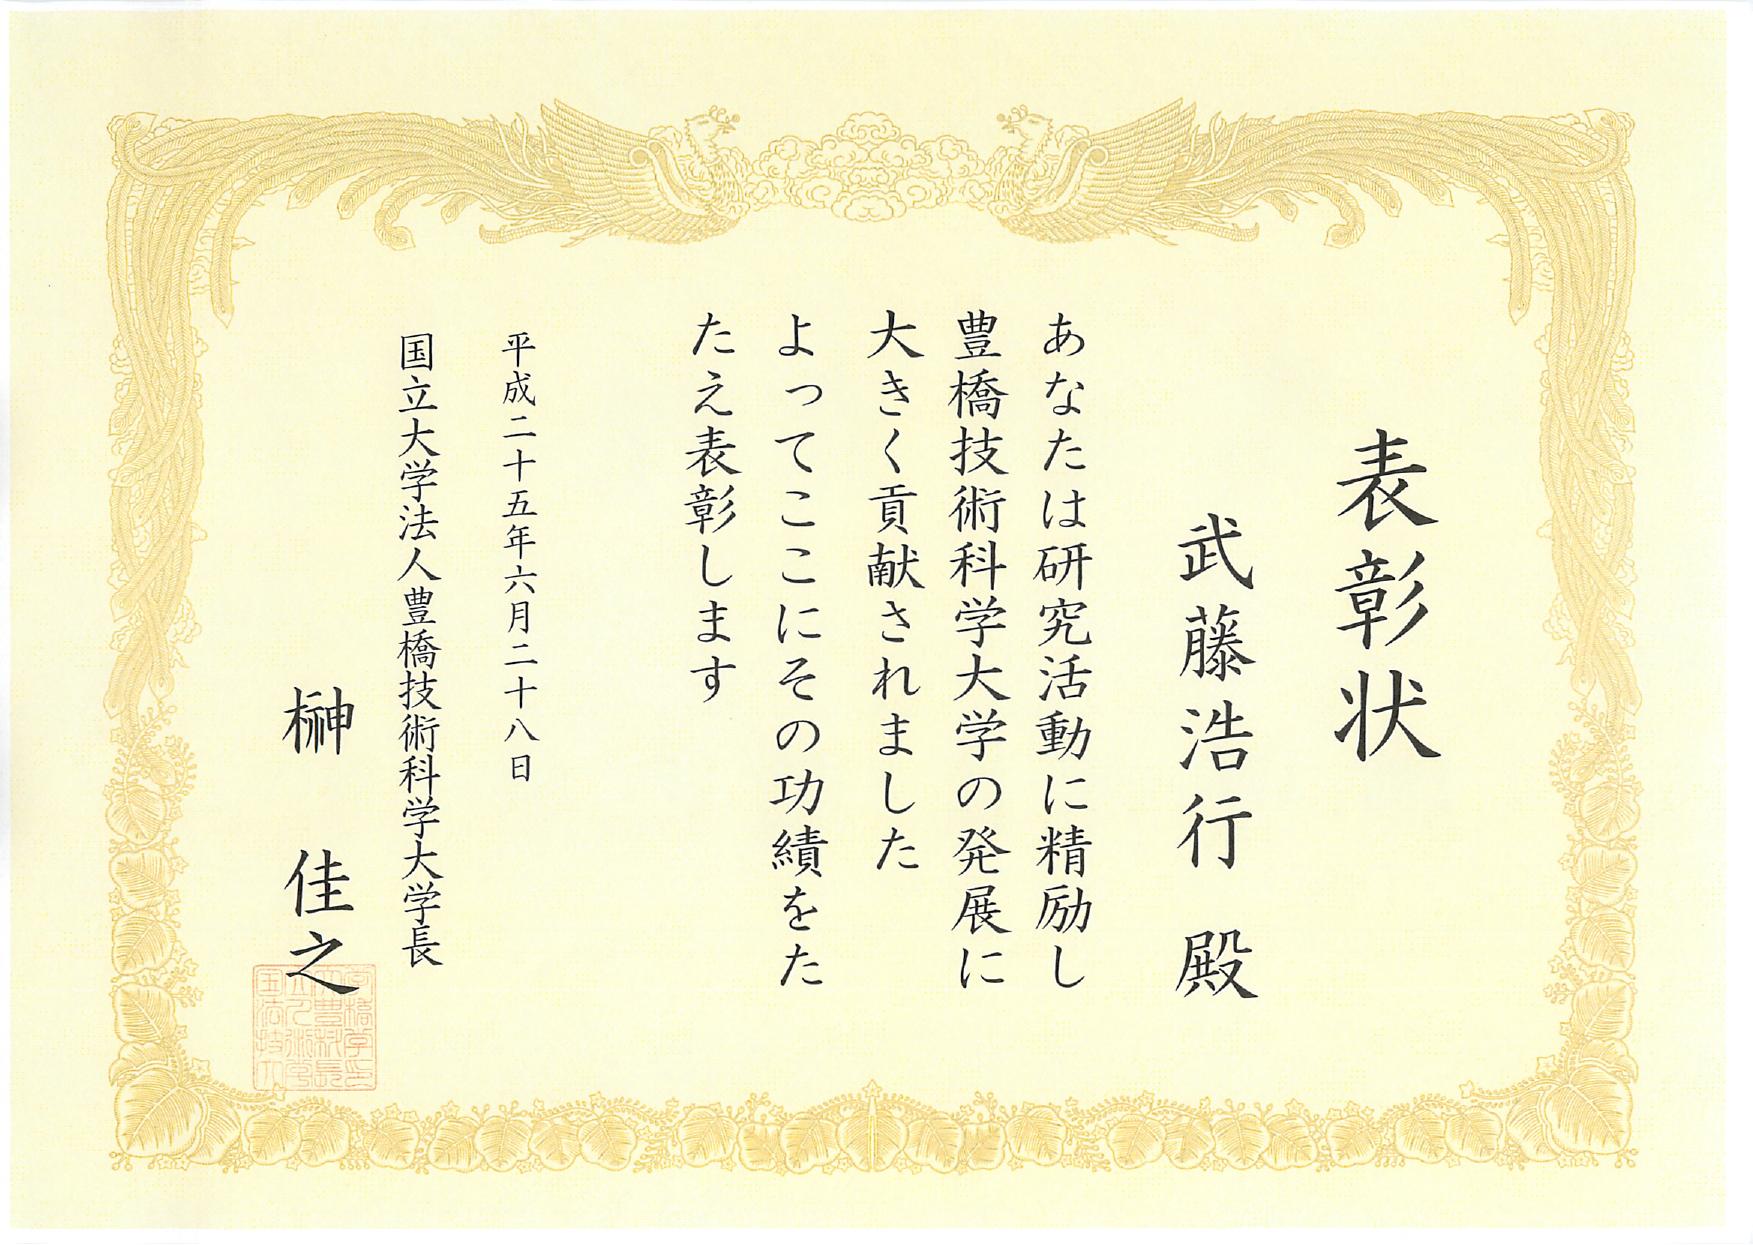 表彰状
武藤浩行 殿
あなたは研究活動に精励し
豊橋技術科学大学の発展に
大きく貢献されました
よってここにその功績をた
たえ表彰します
平成二十五年六月二十八日
国立大学法人豊橋技術科学大学長
榊 佳之